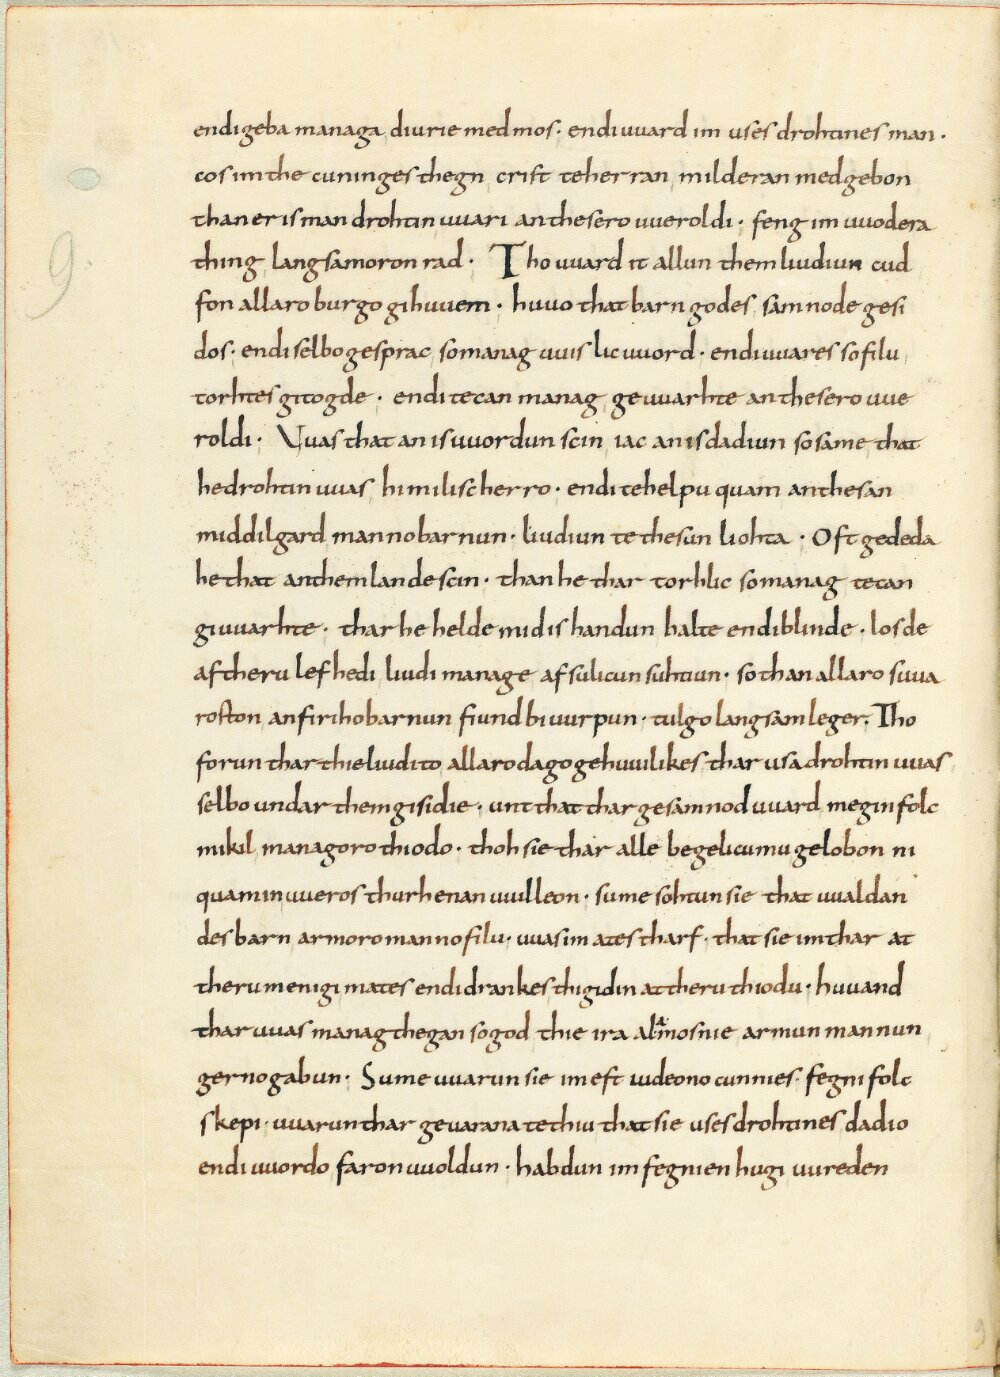 endi geba managa diurie medmos · endi uuard im uses drohtines man ·
cos im the cuninges thegn crist te herran milderan medgebon
than er is man drohtin uuari an thesero uueroldi · feng im uuodera
thing langsamoron rad · Tho uuard it allun them liudiun cud
fon allaro burgo gihuuem · huuo that barn godes samnode gesi
dos · endi selbo gesprac so manag uuislic uuord · endi uuares so filu
torhtes gitogde · endi tecan manag geuuarhte an thesero uue
roldi · Uuas that an is uuordun scin iac an is dadiun so same that
he drohtin uuas himilisc herro · endi te helpu quam an thesan
middilgard manno barnun · liudiun te thesun liohta · Oft gededa
he that an them lande scin · than he thar torhlic so manag tecan
giuuarhte · thar he helde mid is handun halte endi blinde · losde
af theru lefhedi liudi manage af sulicun suhtiun · so than allaro suua
roston an firiho barnun fiund biuurpun · tulgo langsam leger · Tho
forun thar thie liudi to allaro dago gehuuilikes thar usa drohtin uuas
selbo undar them gisidie · unt that thar gesamnod uuard megin folc
mikil managoro thiodo · thoh sie thar alle be gelicumu gelobon ni
quamin uueros thurh enan uuilleon · sume sohtun sie that uualdan
des barn armoro manno filu · uuas im ates tharf · that sie im thar at
theru menigi mates endi drankes thigidin at theru thiodu · huuand
thar uuas manag thegan so god thie ira alamosnie armun mannun
gerno gabun · Sume uuarun sie im eft iudeono cunnies · fegni folc
skepi · uuarun thar geuarana te thiu that sie uses drohtines dadio
endi uuordo faron uuoldun · habdun im fegnien hugi uureden
9